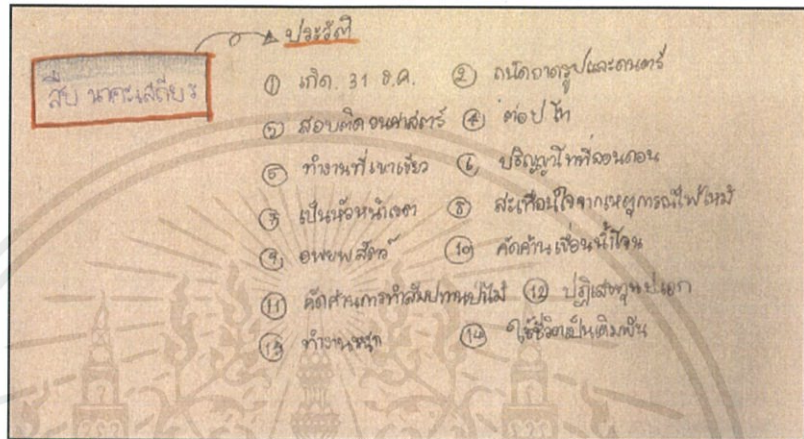 ประวัติ
สืบ นาคะเสถียร
① เกิด. 31 ธ.ค. ② ถนัดวาดรูปและดนตรี
③ สอบติดวนศาสตร์ ④ ต่อป.โท
⑤ ทำงานที่เขาเขียว ⑥ ปริญญาโทที่ลอนดอน
⑦ เป็นหัวหน้าเขตฯ ⑧ สะเทือนใจจากเหตุการณ์ไฟไหม้
⑨ อพยพสัตว์ ⑩ คัดค้านเขื่อนน้ำโจน
⑪ คัดค้านการทำสัมปทานป่าไม้ ⑫ ปฏิเสธทุนป.เอก
⑬ ทำงานหนัก ⑭ ใช้ชีวิตเป็นเดิมพัน